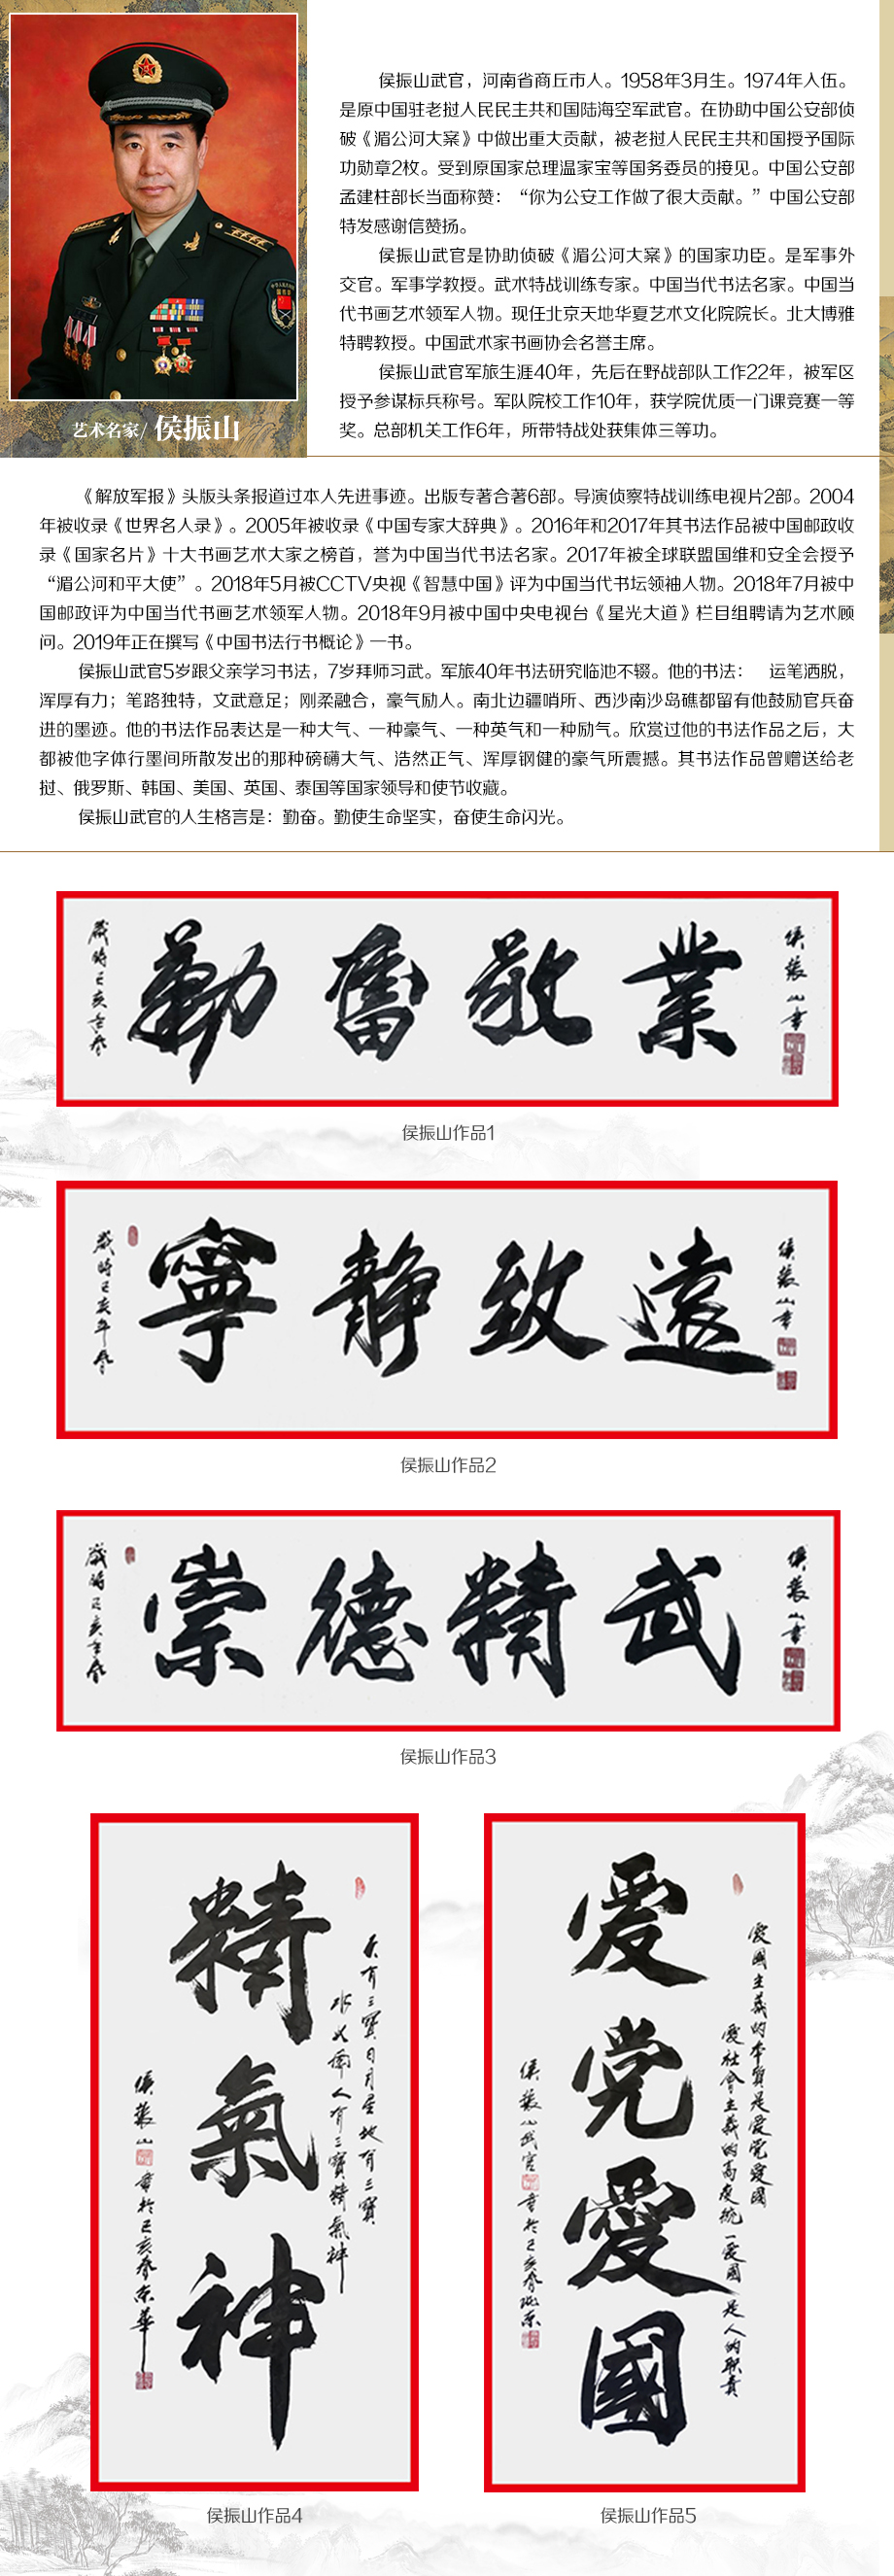 艺术名家/ 侯振山
侯振山武官，河南省商丘市人。1958年3月生。1974年入伍。
是原中国驻老挝人民民主共和国陆海空军武官。在协助中国公安部侦
破《湄公河大案》中做出重大贡献，被老挝人民民主共和国授予国际
功勋章2枚。受到原国家总理温家宝等国务委员的接见。中国公安部
孟建柱部长当面称赞：“你为公安工作做了很大贡献。”中国公安部
特发感谢信赞扬。
侯振山武官是协助侦破《湄公河大案》的国家功臣。是军事外
交官。军事学教授。武术特战训练专家。中国当代书法名家。中国当
代书画艺术领军人物。现任北京天地华夏艺术文化院院长。北大博雅
特聘教授。中国武术家书画协会名誉主席。
侯振山武官军旅生涯40年，先后在野战部队工作22年，被军区
授予参谋标兵称号。军队院校工作10年，获学院优质一门课竞赛一等
奖。总部机关工作6年，所带特战处获集体三等功。
《解放军报》头版头条报道过本人先进事迹。出版专著合著6部。导演侦察特战训练电视片2部。2004
年被收录《世界名人录》。2005年被收录《中国专家大辞典》。2016年和2017年其书法作品被中国邮政收
录《国家名片》十大书画艺术大家之榜首，誉为中国当代书法名家。2017年被全球联盟国维和安全会授予
“湄公河和平大使”。2018年5月被CCTV央视《智慧中国》评为中国当代书坛领袖人物。2018年7月被中
国邮政评为中国当代书画艺术领军人物。2018年9月被中国中央电视台《星光大道》栏目组聘请为艺术顾
问。2019年正在撰写《中国书法行书概论》一书。
侯振山武官5岁跟父亲学习书法，7岁拜师习武。军旅40年书法研究临池不辍。他的书法： 运笔洒脱，
浑厚有力；笔路独特，文武意足；刚柔融合，豪气励人。南北边疆哨所、西沙南沙岛礁都留有他鼓励官兵奋
进的墨迹。他的书法作品表达是一种大气、一种豪气、一种英气和一种励气。欣赏过他的书法作品之后，大
都被他字体行墨间所散发出的那种磅礴大气、浩然正气、浑厚钢健的豪气所震撼。其书法作品曾赠送给老
挝、俄罗斯、韩国、美国、英国、泰国等国家领导和使节收藏。
侯振山武官的人生格言是：勤奋。勤使生命坚实，奋使生命闪光。
歲時己亥年春
勤奮敬業
侯振山書
侯振山作品1
歲時己亥年春
寧靜致遠
侯振山書
侯振山作品2
歲時己亥年春
崇德精武
侯振山書
侯振山作品3
天有三寶日月星地有三寶
水火風人有三寶精氣神
精氣神
侯振山
書於己亥春京華
侯振山作品4
愛國主義的本質是愛党愛國
愛社會主義的高度統一愛國是人的職責
爱党愛國
侯振山武官
書於己亥春北京
侯振山作品5